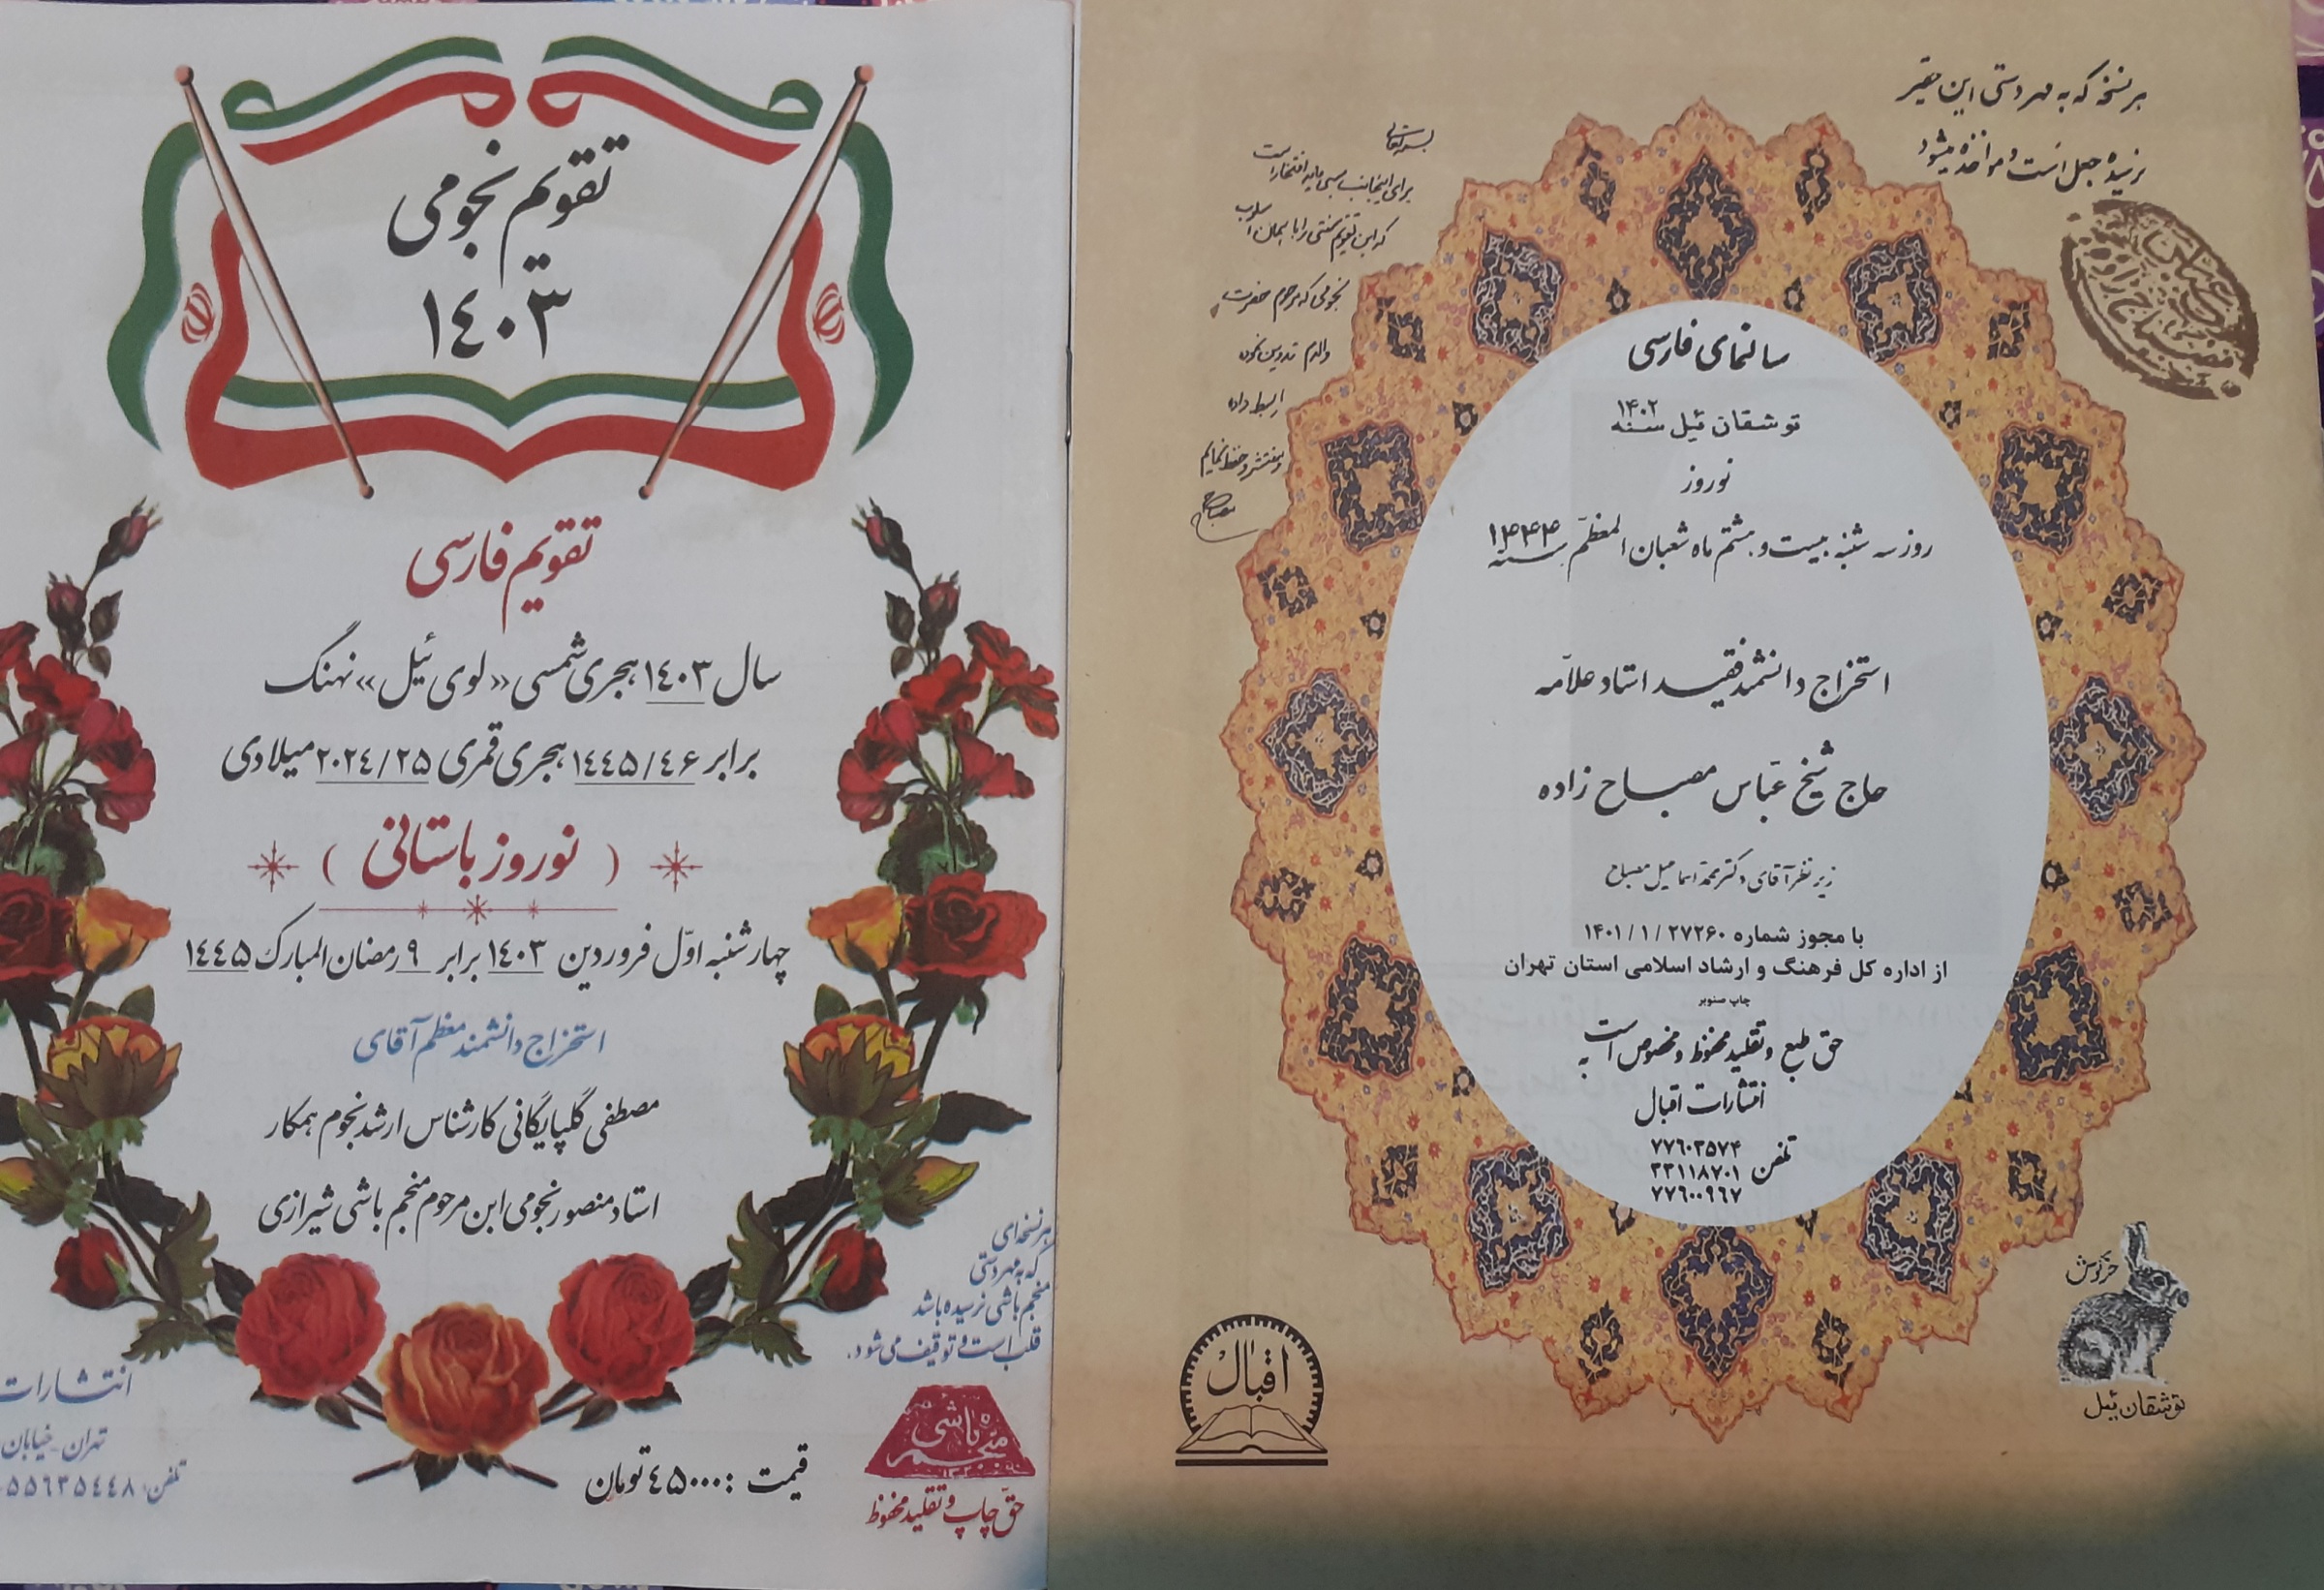 تقویم نجومی
۱٤۰۳
تقویم فارسی
سال ۱٤۰۳ هجری شمسی «لوی ئیل» نهنگ
برابر ۱٤٤۵/٤۶ هجری قمری ۲۰۲٤/۲۵ میلادی
( نوروز باستانی )
چهارشنبه اوّل فروردین ۱٤۰۳ برابر ۹ رمضان المبارک ۱٤٤۵
استخراج دانشمند معظم آقای
مصطفی گلپایگانی کارشناس ارشد نجوم همکار
استاد منصور نجومی ابن مرحوم منجم باشی شیرازی
هر نسخه‌ای
که به مهر دستی
منجم باشی نرسیده باشد
قلب است و توقیف می شود.
منجم باشی
حق چاپ و تقلید محفوظ
قیمت : ٤۵۰۰۰ تومان
انتشارات
تهران - خیابان
تلفن: ۵۵٦۳۵٤٤۸
هر نسخه که به مهر دستی این حقیر
نرسیده جعل است و مواخذه میشود
بسمه تعالی
برای اینجانب بسی مایه افتخار است
که این تقویم سنتی را با همان اسلوب
نجومی که مرحوم حضرت
والدم تدوین نموده
بسط داده
و منتشر و حفظ نمایم
مصباح
سالنمای فارسی
توشقان ئیل سنه ۱۴۰۲
نوروز
روز سه شنبه بیست و هشتم ماه شعبان المعظّم سنه ۱۴۴۴
استخراج دانشمند فقید استاد علاّمه
حاج شیخ عبّاس مصباح زاده
زیر نظر آقای دکتر محمد اسماعیل مصباح
با مجوز شماره ۲۷۲۶۰ / ۱ / ۱۴۰۱
از اداره کل فرهنگ و ارشاد اسلامی استان تهران
چاپ صنوبر
حق طبع و تقلید محفوظ و مخصوص است به
انتشارات اقبال
تلفن ۷۷٦۰۳۵۷۴
۳۳۱۱۸۷۰۱
۷۷٦۰۰۹٦۷
اقبال
خرگوش
توشقان ئیل